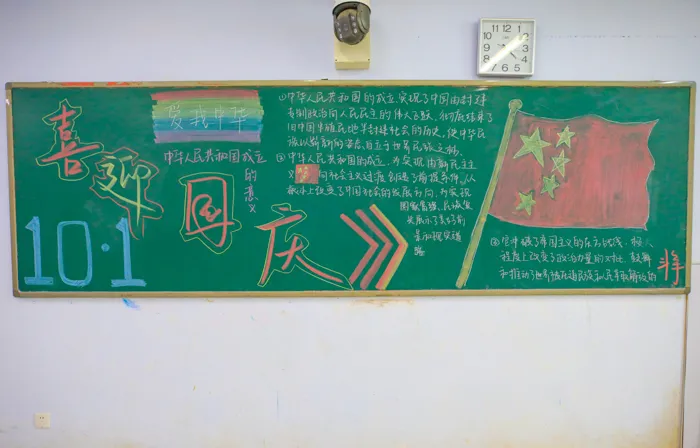 喜迎国庆
10·1
爱我中华
中华人民共和国成立
的意义
①中华人民共和国的成立,实现了中国由封建
专制政治向人民民主的伟大飞跃,彻底结束了
旧中国半殖民地半封建社会的历史,使中华民
族以崭新的姿态自立于世界民族之林。
②中华人民共和国的成立,为实现由新民主主
义向社会主义过渡创造了前提条件,从
根本上改变了中国社会的发展方向,为实现
国家富强、民族复
兴展示了美好前
景和现实道
路
③它冲破了帝国主义的东方战线,极大
程度上改变了政治力量的对比,鼓舞
和推动了世界被压迫民族和人民争取解放的
斗争
12
11
10
9
8
7
6
5
4
3
2
1